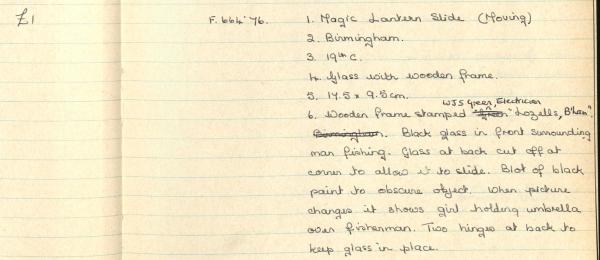 £1
F.664'76.
1. Magic Lantern Slide (Moving)
2. Birmingham.
3. 19th c.
4. Glass with wooden frame.
5. 17.5 x 9.5cm.
WJS Green, Electrician
6. Wooden frame stamped "Lozells, B'ham".
Birmingham. Black glass in front surrounding
man fishing. Glass at back cut off at
corner to allow it to slide. Blot of black
paint to obscure object. When picture
changes it shows girl holding umbrella
over fisherman. Two hinges at back to
keep glass in place.